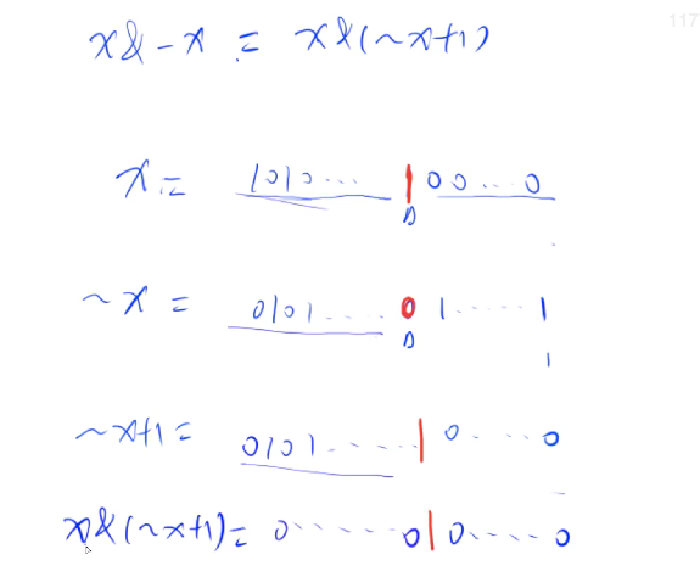 117
x&-x = x&(~x+1)
x= 1010... 100...0
~x = 0101.... 01.....1
1
~x+1= 0101.....10....0
x&(~x+1)= 0.....010....0